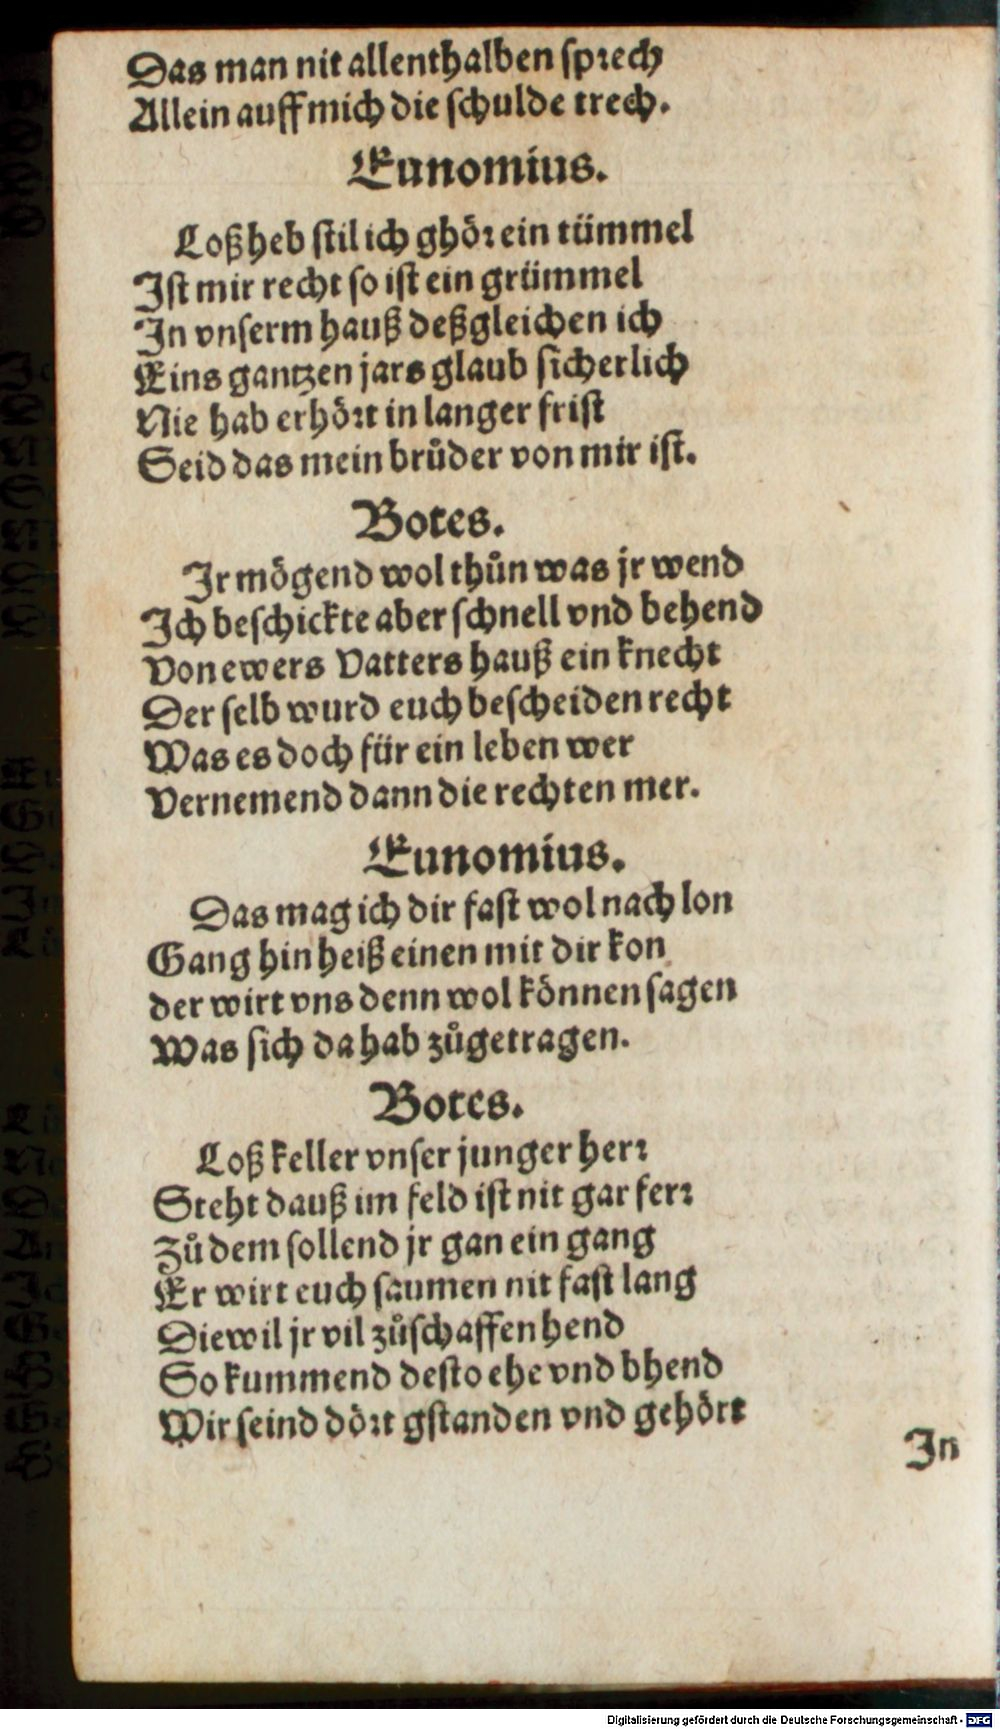 Das man nit allenthalben sprech
Allein auff mich die schulde trech.
Eunomius.
Loß heb stil ich ghör ein tümmel
Ist mir recht so ist ein grümmel
In vnserm hauß deßgleichen ich
Eins gantzen jars glaub sicherlich
Nie hab erhört in langer frist
Seid das mein brůder von mir ist.
Botes.
Ir mögend wol thůn was jr wend
Ich beschickte aber schnell vnd behend
Von ewers Vatters hauß ein knecht
Der selb wurd euch bescheiden recht
Was es doch für ein leben wer
Vernemend dann die rechten mer.
Eunomius.
Das mag ich dir fast wol nach lon
Gang hin heiß einen mit dir kon
der wirt vns denn wol können sagen
Was sich da hab zůgetragen.
Botes.
Loß keller vnser junger herr
Steht dauß im feld ist nit gar ferr
Zů dem sollend jr gan ein gang
Er wirt euch saumen nit fast lang
Diewil jr vil zůschaffen hend
So kummend desto ehe vnd bhend
Wir seind dört gstanden vnd gehört
In
Digitalisierung gefördert durch die Deutsche Forschungsgemeinschaft - DFG